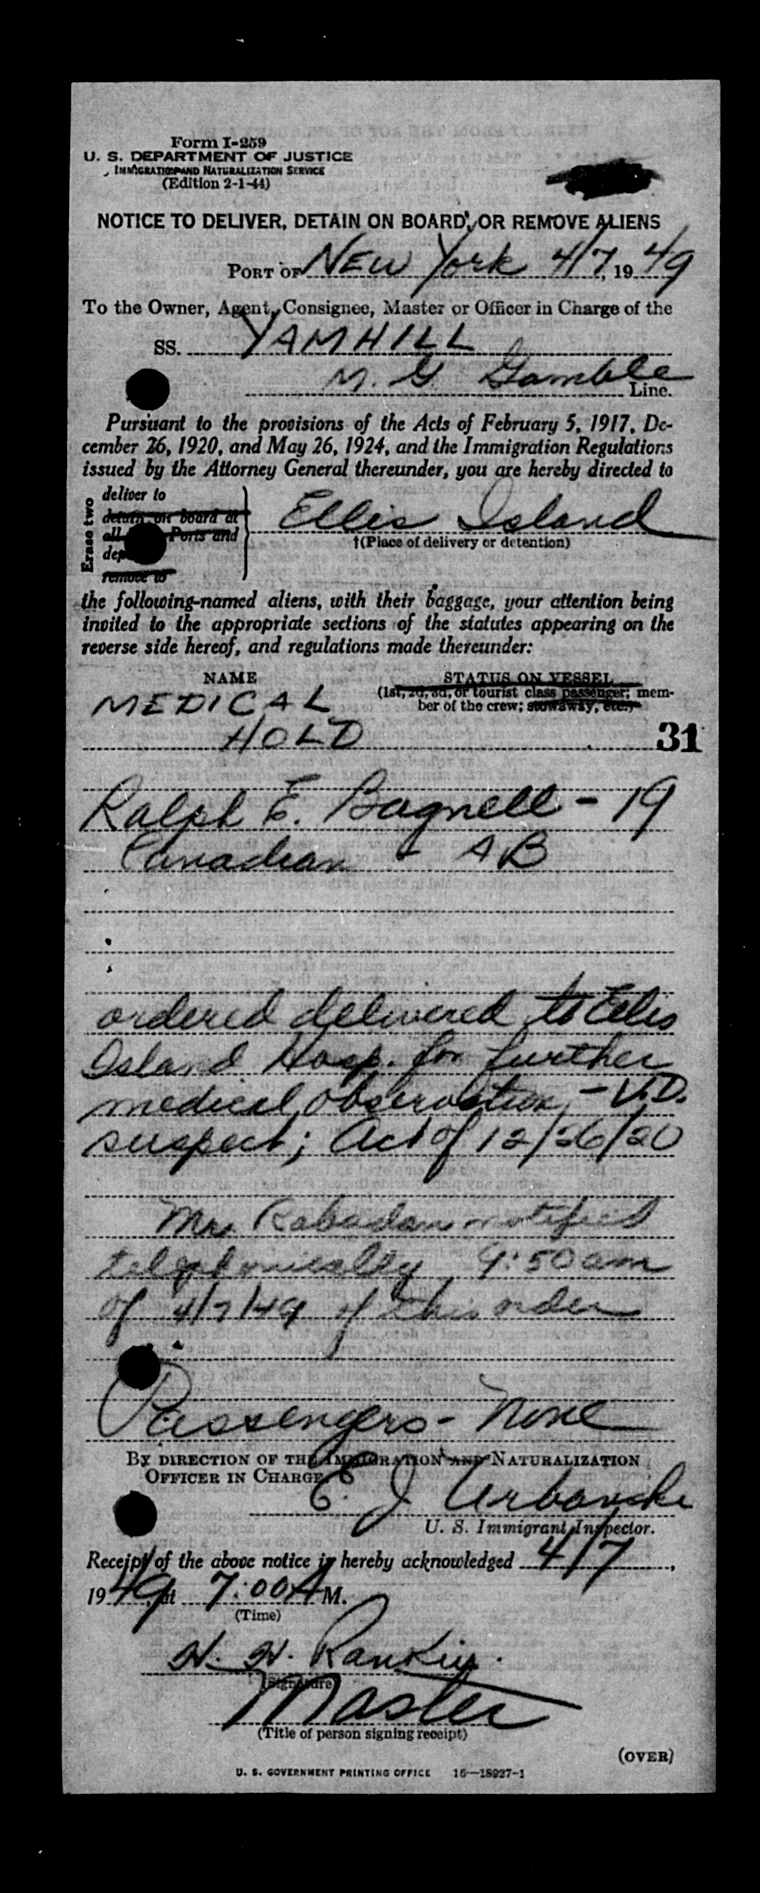 Form I-259
U. S. DEPARTMENT OF JUSTICE
IMMIGRATION AND NATURALIZATION SERVICE
(Edition 2-1-44)
NOTICE TO DELIVER, DETAIN ON BOARD, OR REMOVE ALIENS
PORT OF NEW York 4/7, 1949
To the Owner, Agent, Consignee, Master or Officer in Charge of the
SS. YAMHILL
M. G Gamble Line.
Pursuant to the provisions of the Acts of February 5, 1917, De-
cember 26, 1920, and May 26, 1924, and the Immigration Regulations
issued by the Attorney General thereunder, you are hereby directed to
Erase two
deliver to
detain on board at
all Ports and
remove to
Ellis Island
†(Place of delivery or detention)
the following-named aliens, with their baggage, your attention being
invited to the appropriate sections of the statutes appearing on the
reverse side hereof, and regulations made thereunder:
NAME STATUS ON VESSEL
(1st, 2d, 3d, or tourist class passenger; mem-
ber of the crew; stowaway, etc.)
MEDICAL
HOLD
31
Ralph E. Bagnell - 19
Canadian - AB
ordered delivered to Ellis
Island Hosp. for further
medical observation, - V.D.
suspect; Act of 12/26/20
Mr. Rabadan notified
telephonically 9:50 am
of 4/7/49 of this order
Passengers - None
BY DIRECTION OF THE IMMIGRATION AND NATURALIZATION
OFFICER IN CHARGE
E. J Urbanski
U. S. Immigrant Inspector.
Receipt of the above notice is hereby acknowledged 4/7,
1949, at 7:00 A M.
(Time)
H. H. Rankin.
(Signature)
Master
(Title of person signing receipt)
(OVER)
U. S. GOVERNMENT PRINTING OFFICE 16—18927-1